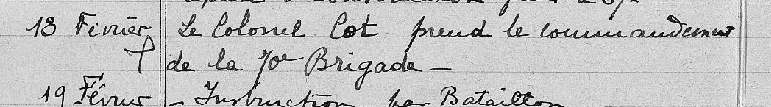 13 Février Le Colonel Cot prend le commandement
de la 70e Brigade —
19 Février - Instruction par Bataillon